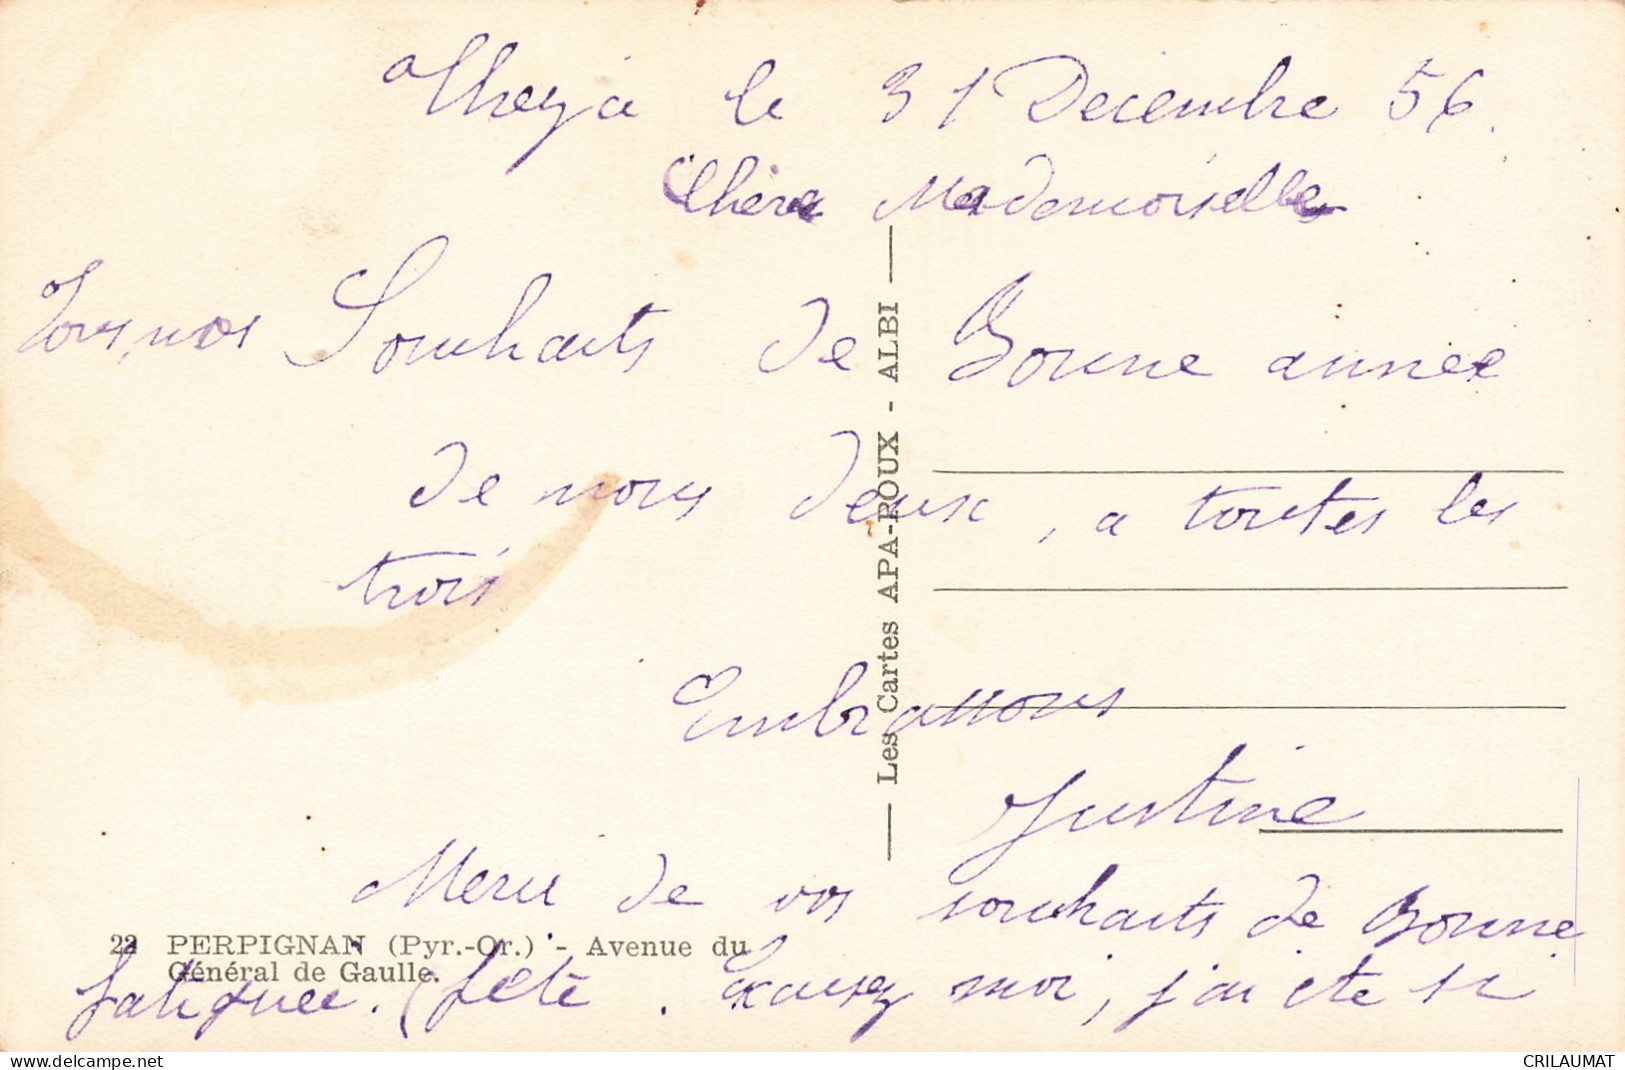 le 31 Decembre 56.
Chère Mademoiselle
Tous nos Souhaits de Bonne année
de nous deux, a toutes les
trois
Embrassons
Justine
Merci de vos souhaits de Bonne
fatiguée. (fête. Excusez moi, j'ai ete si
22 PERPIGNAN (Pyr.-Or.) - Avenue du
Général de Gaulle.
Les Cartes APA-POUX - ALBI
delcampe.net
CRILAUMAT